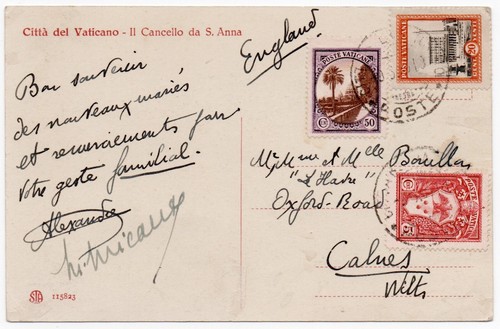 Città del Vaticano - Il Cancello da S. Anna
England
Bon souvenir
des nouveaux mariés
et remerciements pour
votre geste familial.
Alexandre
POSTE VATICANE
50
POSTE VATICANE
20
POSTE
Mr Mme et Melle Bouillon
"L'Havre"
Oxford Road
Calnes
Wilts
POSTE VATICANE
5
STA 115823